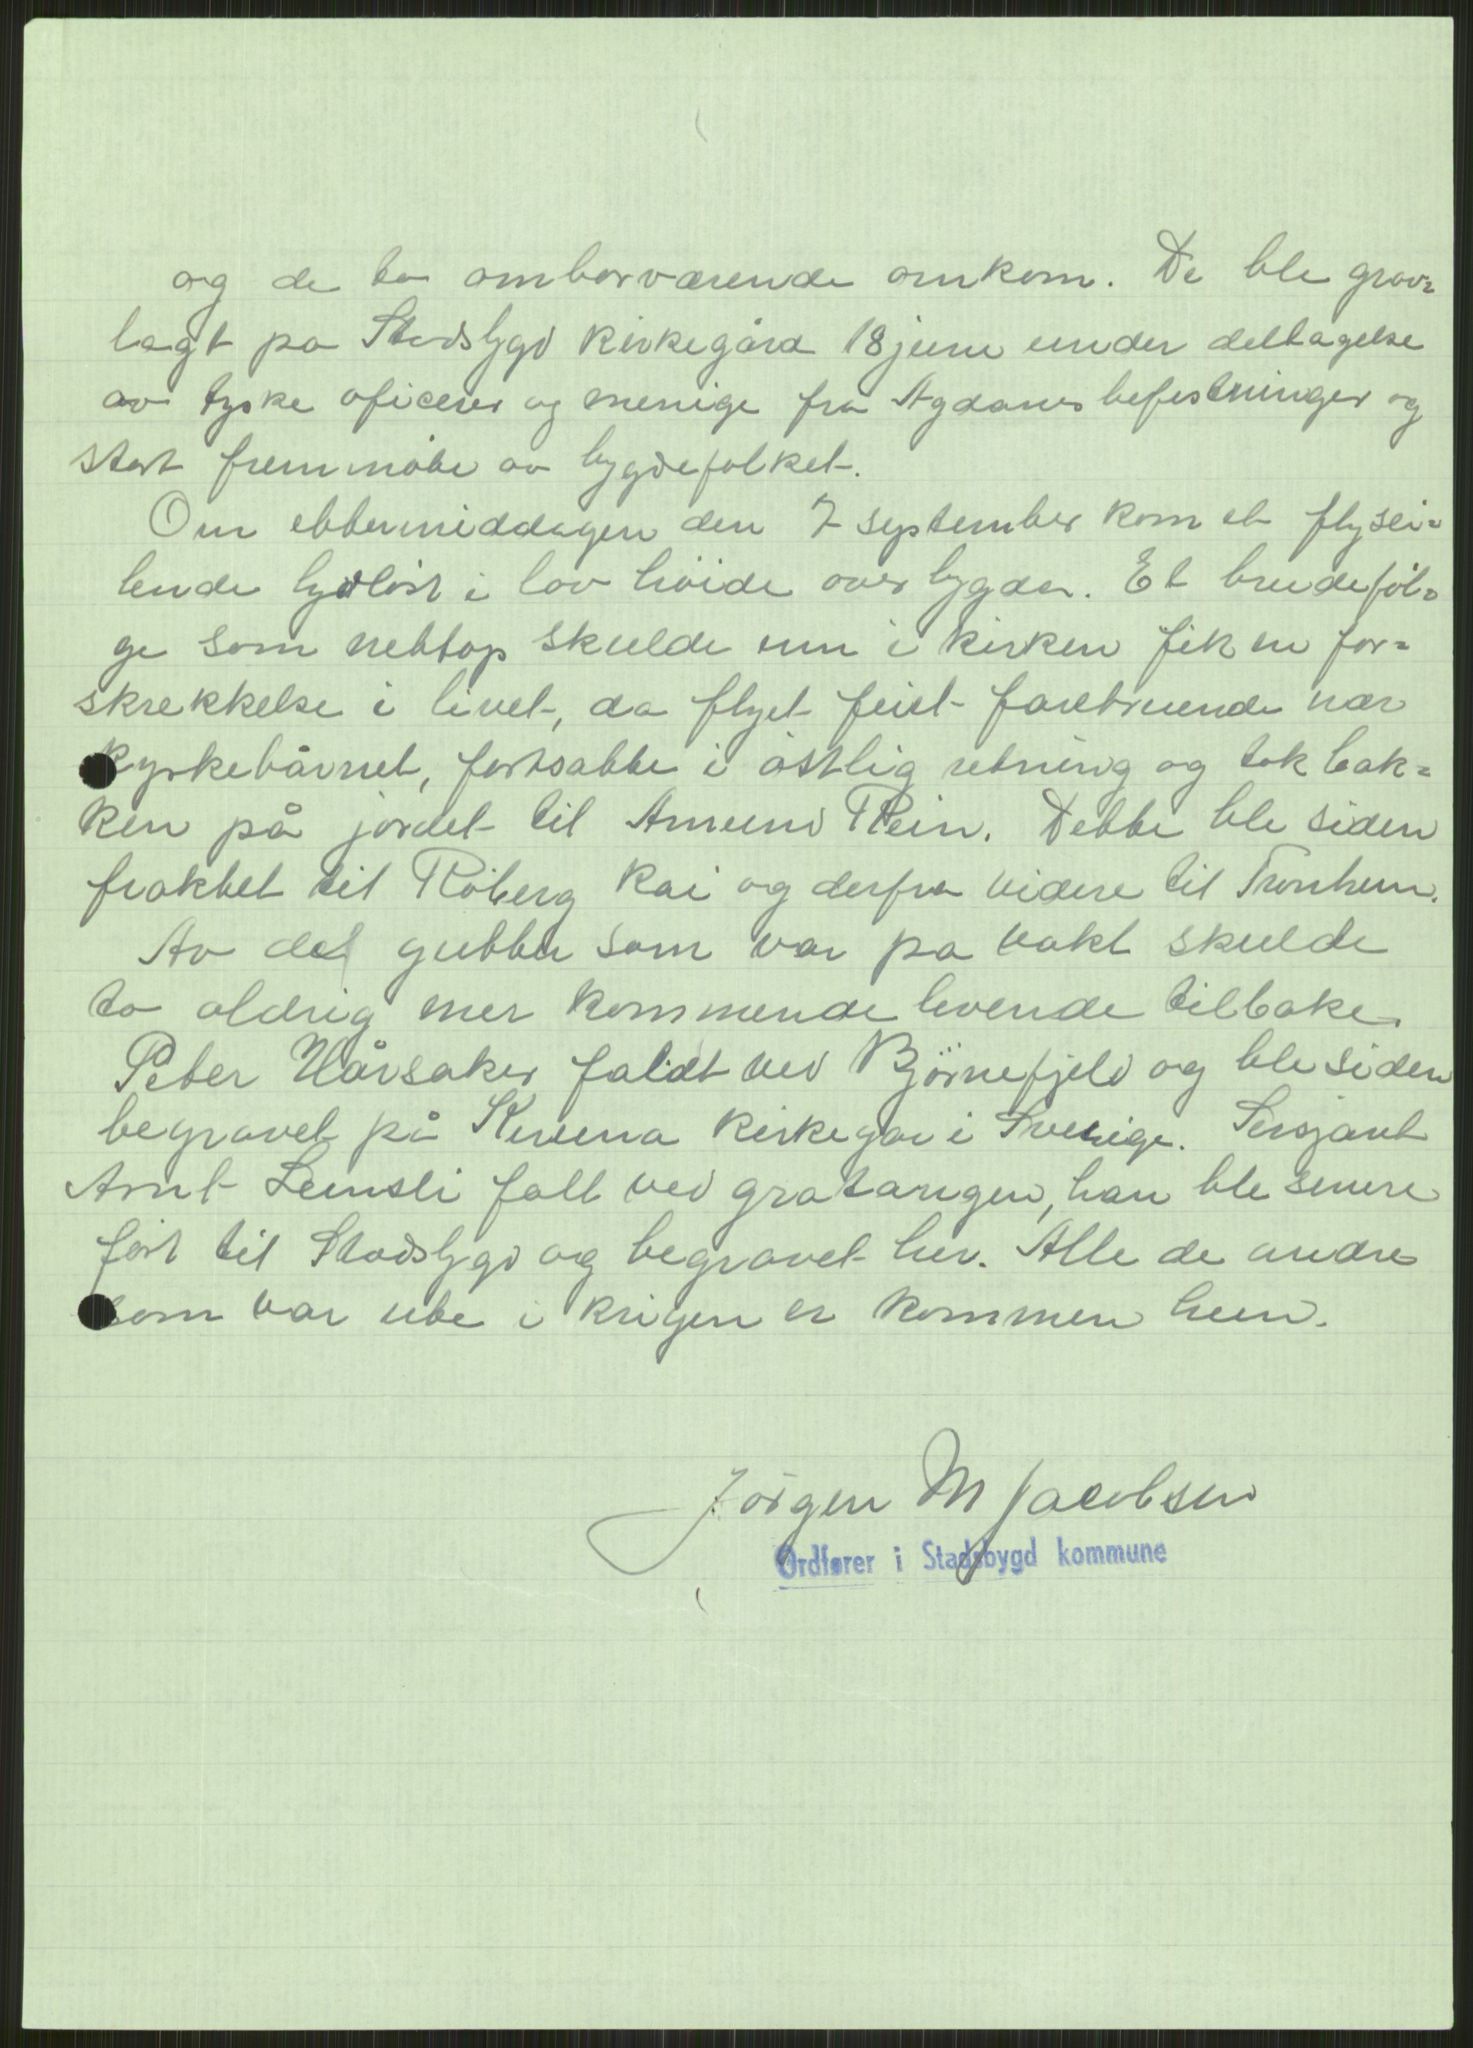 og de to omborværende omkom. De ble grav=
lagt på Stadsbygd kirkegård 18 juni under deltagelse
av tyske oficerer og menige fra Agdanes befestninger og
stort fremmøte av bygdefolket.
Om ettermiddagen den 7 september kom et fly sei=
lende lydløst i lav høide over bygda. Et brudeføl=
ge som nettop skulde inn i kirken fik en for=
skrekkelse i livet, da flyet feiet faretruende nær
kyrketårnet, fortsatte i østlig retning og tok bak=
ken på jordet til Amund Rein. Dette ble siden
fraktet til Røberg kai og derfra videre til Tronheim.
Av de gutter som var på vakt skulde
to aldrig mer kommende levende tilbake.
Peter Hårsaker faldt ved Bjørnefjeld og ble siden
begravet på Kiruna kirkegår i Sverige. Sersjant
Arnt Leinsli falt ved gratangen, han ble senere
ført til Stadsbygd og begravet her. Alle de andre
som var ute i krigen er kommen heim.
Jørgen M Jacobsen
Ordfører i Stadsbygd kommune